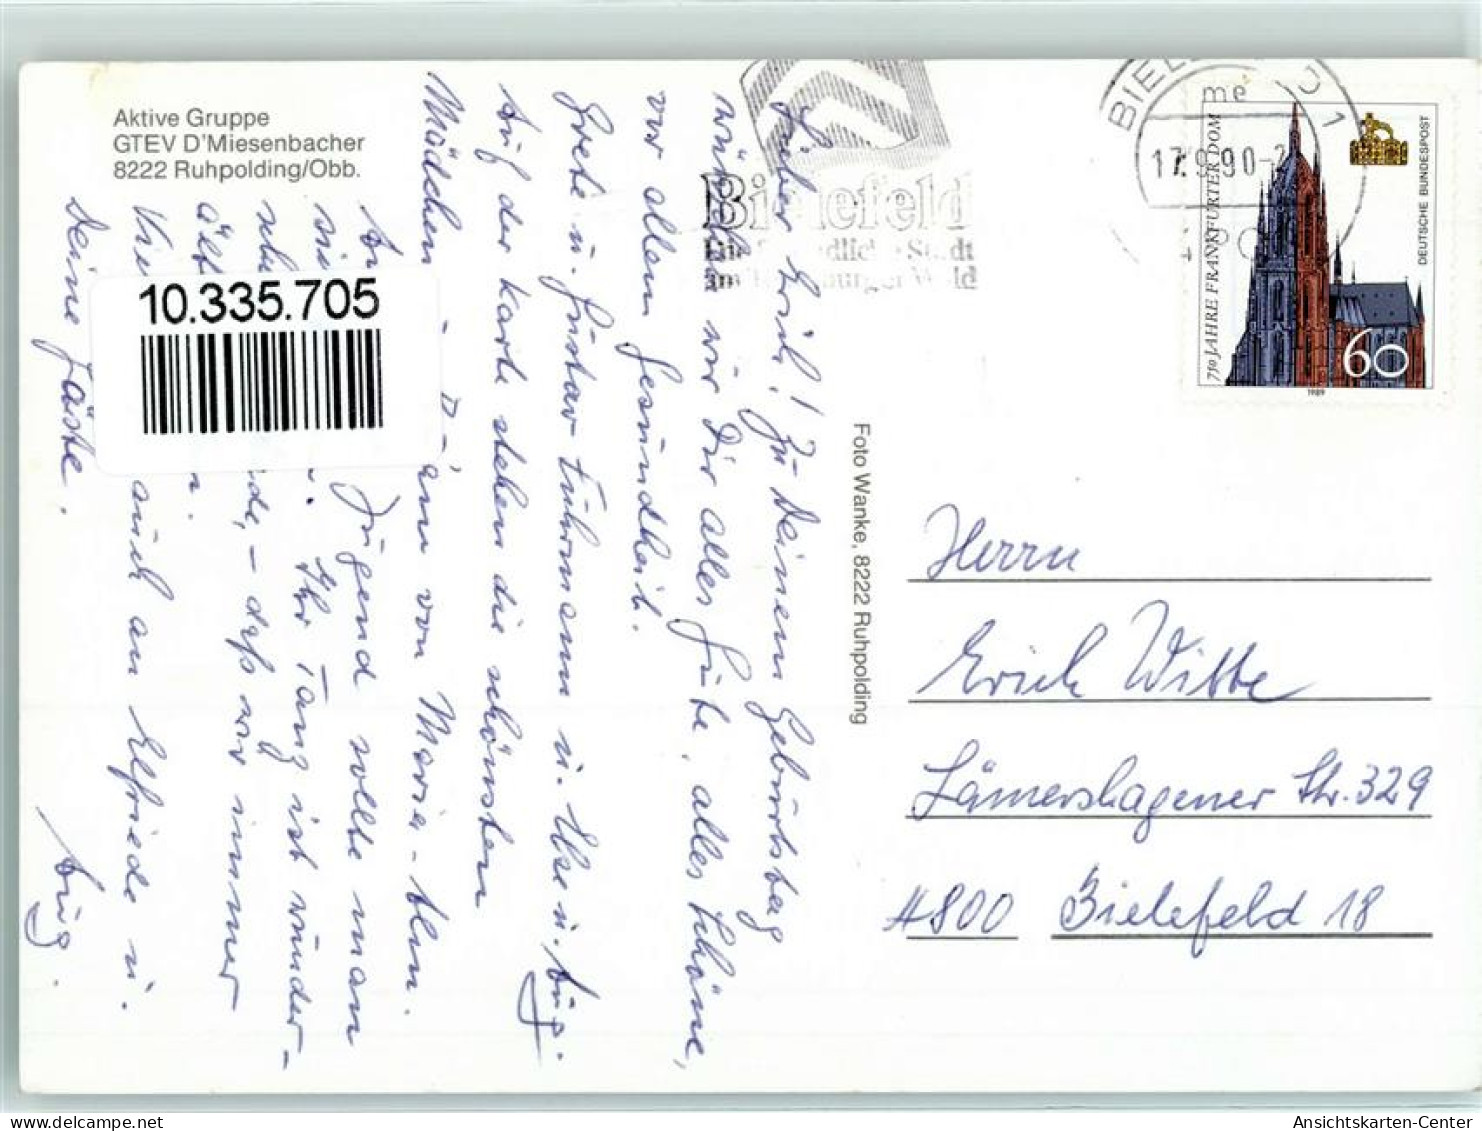 Aktive Gruppe
GTEV D'Miesenbacher
8222 Ruhpolding/Obb.
10.335.705
Lieber Erich! Zu Deinem Geburtstag
wünschen wir Dir alles Gute, alles Schöne,
vor allem Gesundheit.
Grete u. Gustav Fuhrmann u. Else u. Aug.
Auf der Karte stehen die schönsten
Mädchen - von Maria-Alm.
Jugend sollte man
Ihr Tanz ist wunder-
daß wir immer
auch an Elfriede u.
Deine Gäste.
Aug.
Foto Wanke, 8222 Ruhpolding
Bielefeld
Die freundliche Stadt
am Teutoburger Wald
BIELEFELD 1
me
17.9.90-2
4800
750 JAHRE FRANKFURTER DOM
DEUTSCHE BUNDESPOST
60
1989
Herrn
Erich Witte
Lämershagener Str. 329
4800 Bielefeld 18
Ansichtskarten-Center